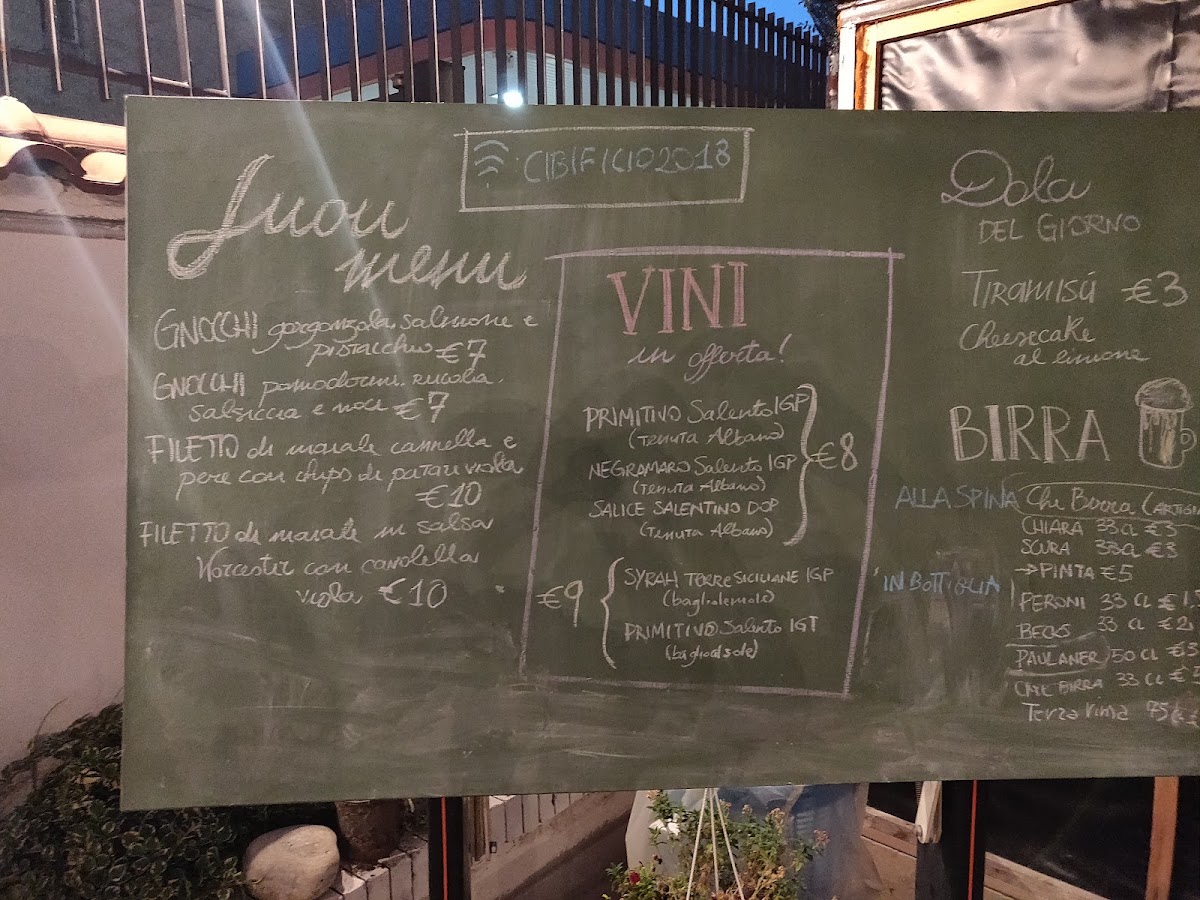 CIBIFICIO2018
Fuori
menu
GNOCCHI gorgonzola, salmone e
pistacchio €7
GNOCCHI pomodorini, rucola,
salsiccia e noci €7
FILETTO di maiale cannella e
pere con chips di patate viola
€10
FILETTO di maiale in salsa
Worcester con cavolella
viola €10
VINI
in offerta!
PRIMITIVO Salento IGP
(Tenuta Albano)
NEGRAMARO Salento IGP
(Tenuta Albano)
SALICE SALENTINO DOP
(Tenuta Albano)
€8
€9
SYRAH TERRE SICILIANE IGP
PRIMITIVO Salento IGT
Dolci
DEL GIORNO
TIRAMISÚ €3
Cheesecake
al limone
BIRRA
ALLA SPINA Che Birra (ARTIGIA
CHIARA 33Cl €3
SCURA 33Cl €3
→PINTA €5
IN BOTTIGLIA
PERONI 33 CL €1
BECKS 33 CL €2
PAULANER 50 CL €3
CHE BIRRA 33 CL €
Terra Rima 75